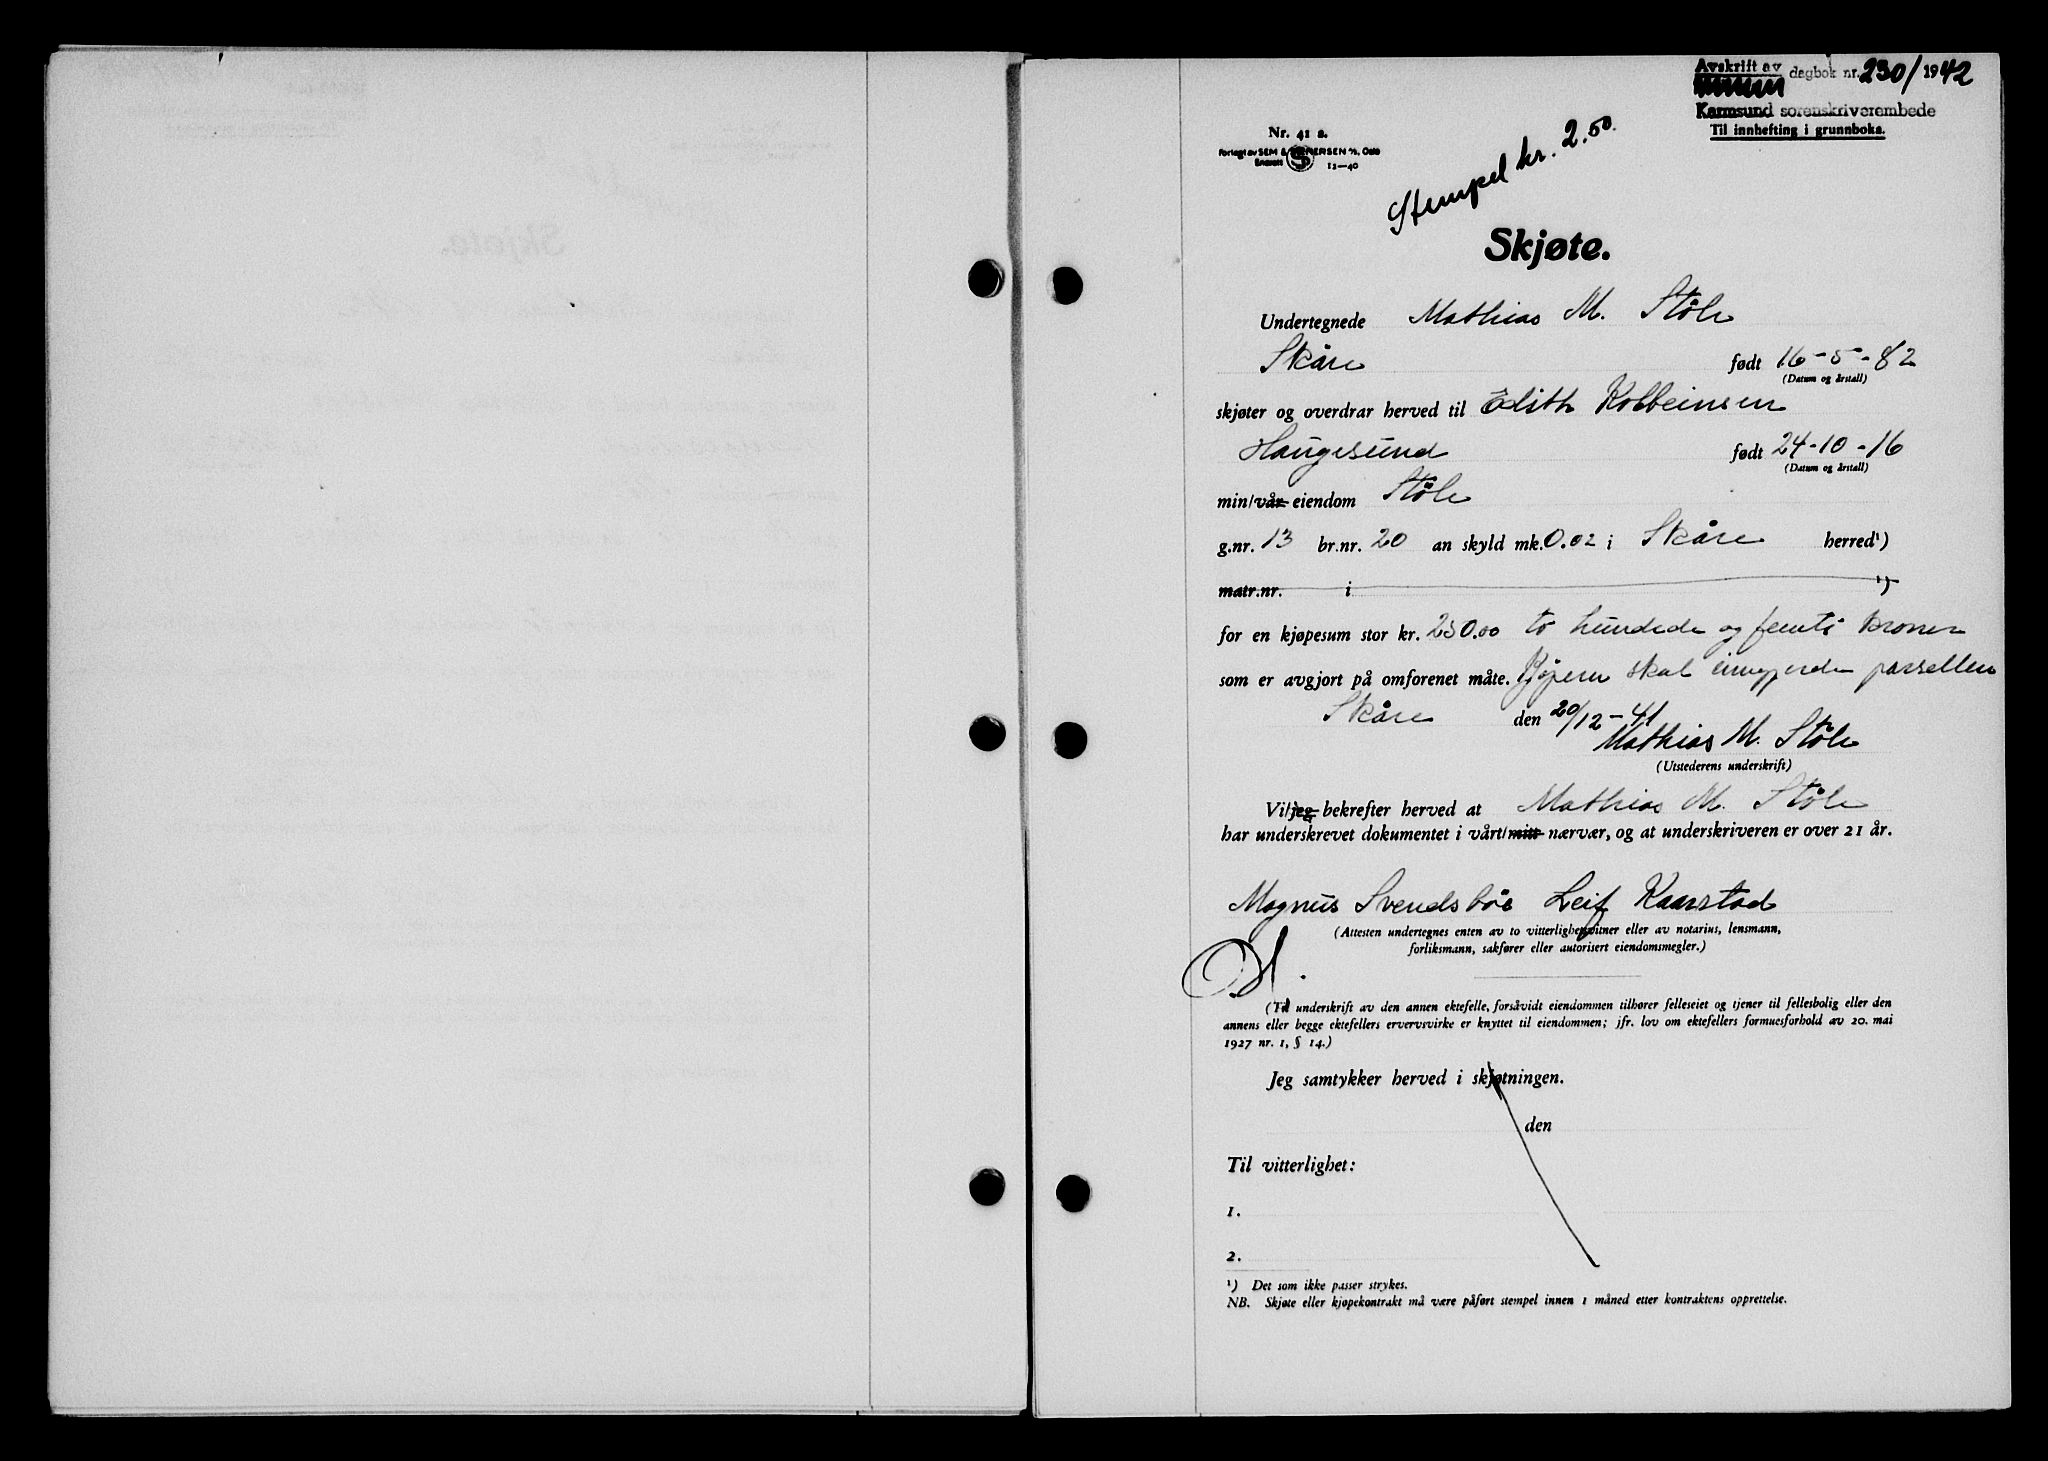 Avskrift av
dagbok nr. 230/1942
Karmsund sorenskriverembede
Til innhefting i grunnboka.
Nr. 41 a.
Forlagt av SEM & STENERSEN A/S, Oslo
Enerett 12—40
Stempel kr. 2.50.
Skjøte.
Undertegnede Mathias M. Stöle
Skåre født 16-5-82
(Datum og årstall)
skjøter og overdrar herved til Edith Kolbeinsen
Haugesund født 24-10-16
(Datum og årstall)
min/vår eiendom Stöle
g.nr. 13 br.nr. 20 an skyld mk. 0.02 i Skåre herred¹)
matr.nr. i ¹)
for en kjøpesum stor kr. 250.00 to hundede og femti kroner
som er avgjort på omforenet måte. Kjøperen skal inngjerde parsellen
Skåre den 20/12-41
Mathias M. Stöle
(Utstederens underskrift)
Vi/jeg bekrefter herved at Mathias M. Stöle
har underskrevet dokumentet i vårt/mitt nærvær, og at underskriveren er over 21 år.
Magnus Svendsböe Leif Kaarstad
(Attesten undertegnes enten av to vitterlighetsvitner eller av notarius, lensmann,
forliksmann, sakfører eller autorisert eiendomsmegler.)
(Til underskrift av den annen ektefelle, forsåvidt eiendommen tilhører felleseiet og tjener til fellesbolig eller den
annens eller begge ektefellers ervervsvirke er knyttet til eiendommen; jfr. lov om ektefellers formuesforhold av 20. mai
1927 nr. 1, § 14.)
Jeg samtykker herved i skjøtningen.
den
Til vitterlighet:
1.
2.
¹) Det som ikke passer strykes.
NB. Skjøte eller kjøpekontrakt må være påført stempel innen 1 måned etter kontraktens opprettelse.